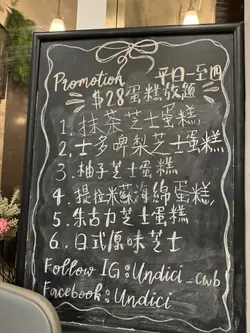 Promotion 平日一至四
$28蛋糕放題
1. 抹茶芝士蛋糕
2. 士多啤梨芝士蛋糕
3. 柚子芝士蛋糕
4. 提拉米蘇海綿蛋糕
5. 朱古力芝士蛋糕
6. 日式原味芝士
Follow IG: Undici_cwb
Facebook: Undici